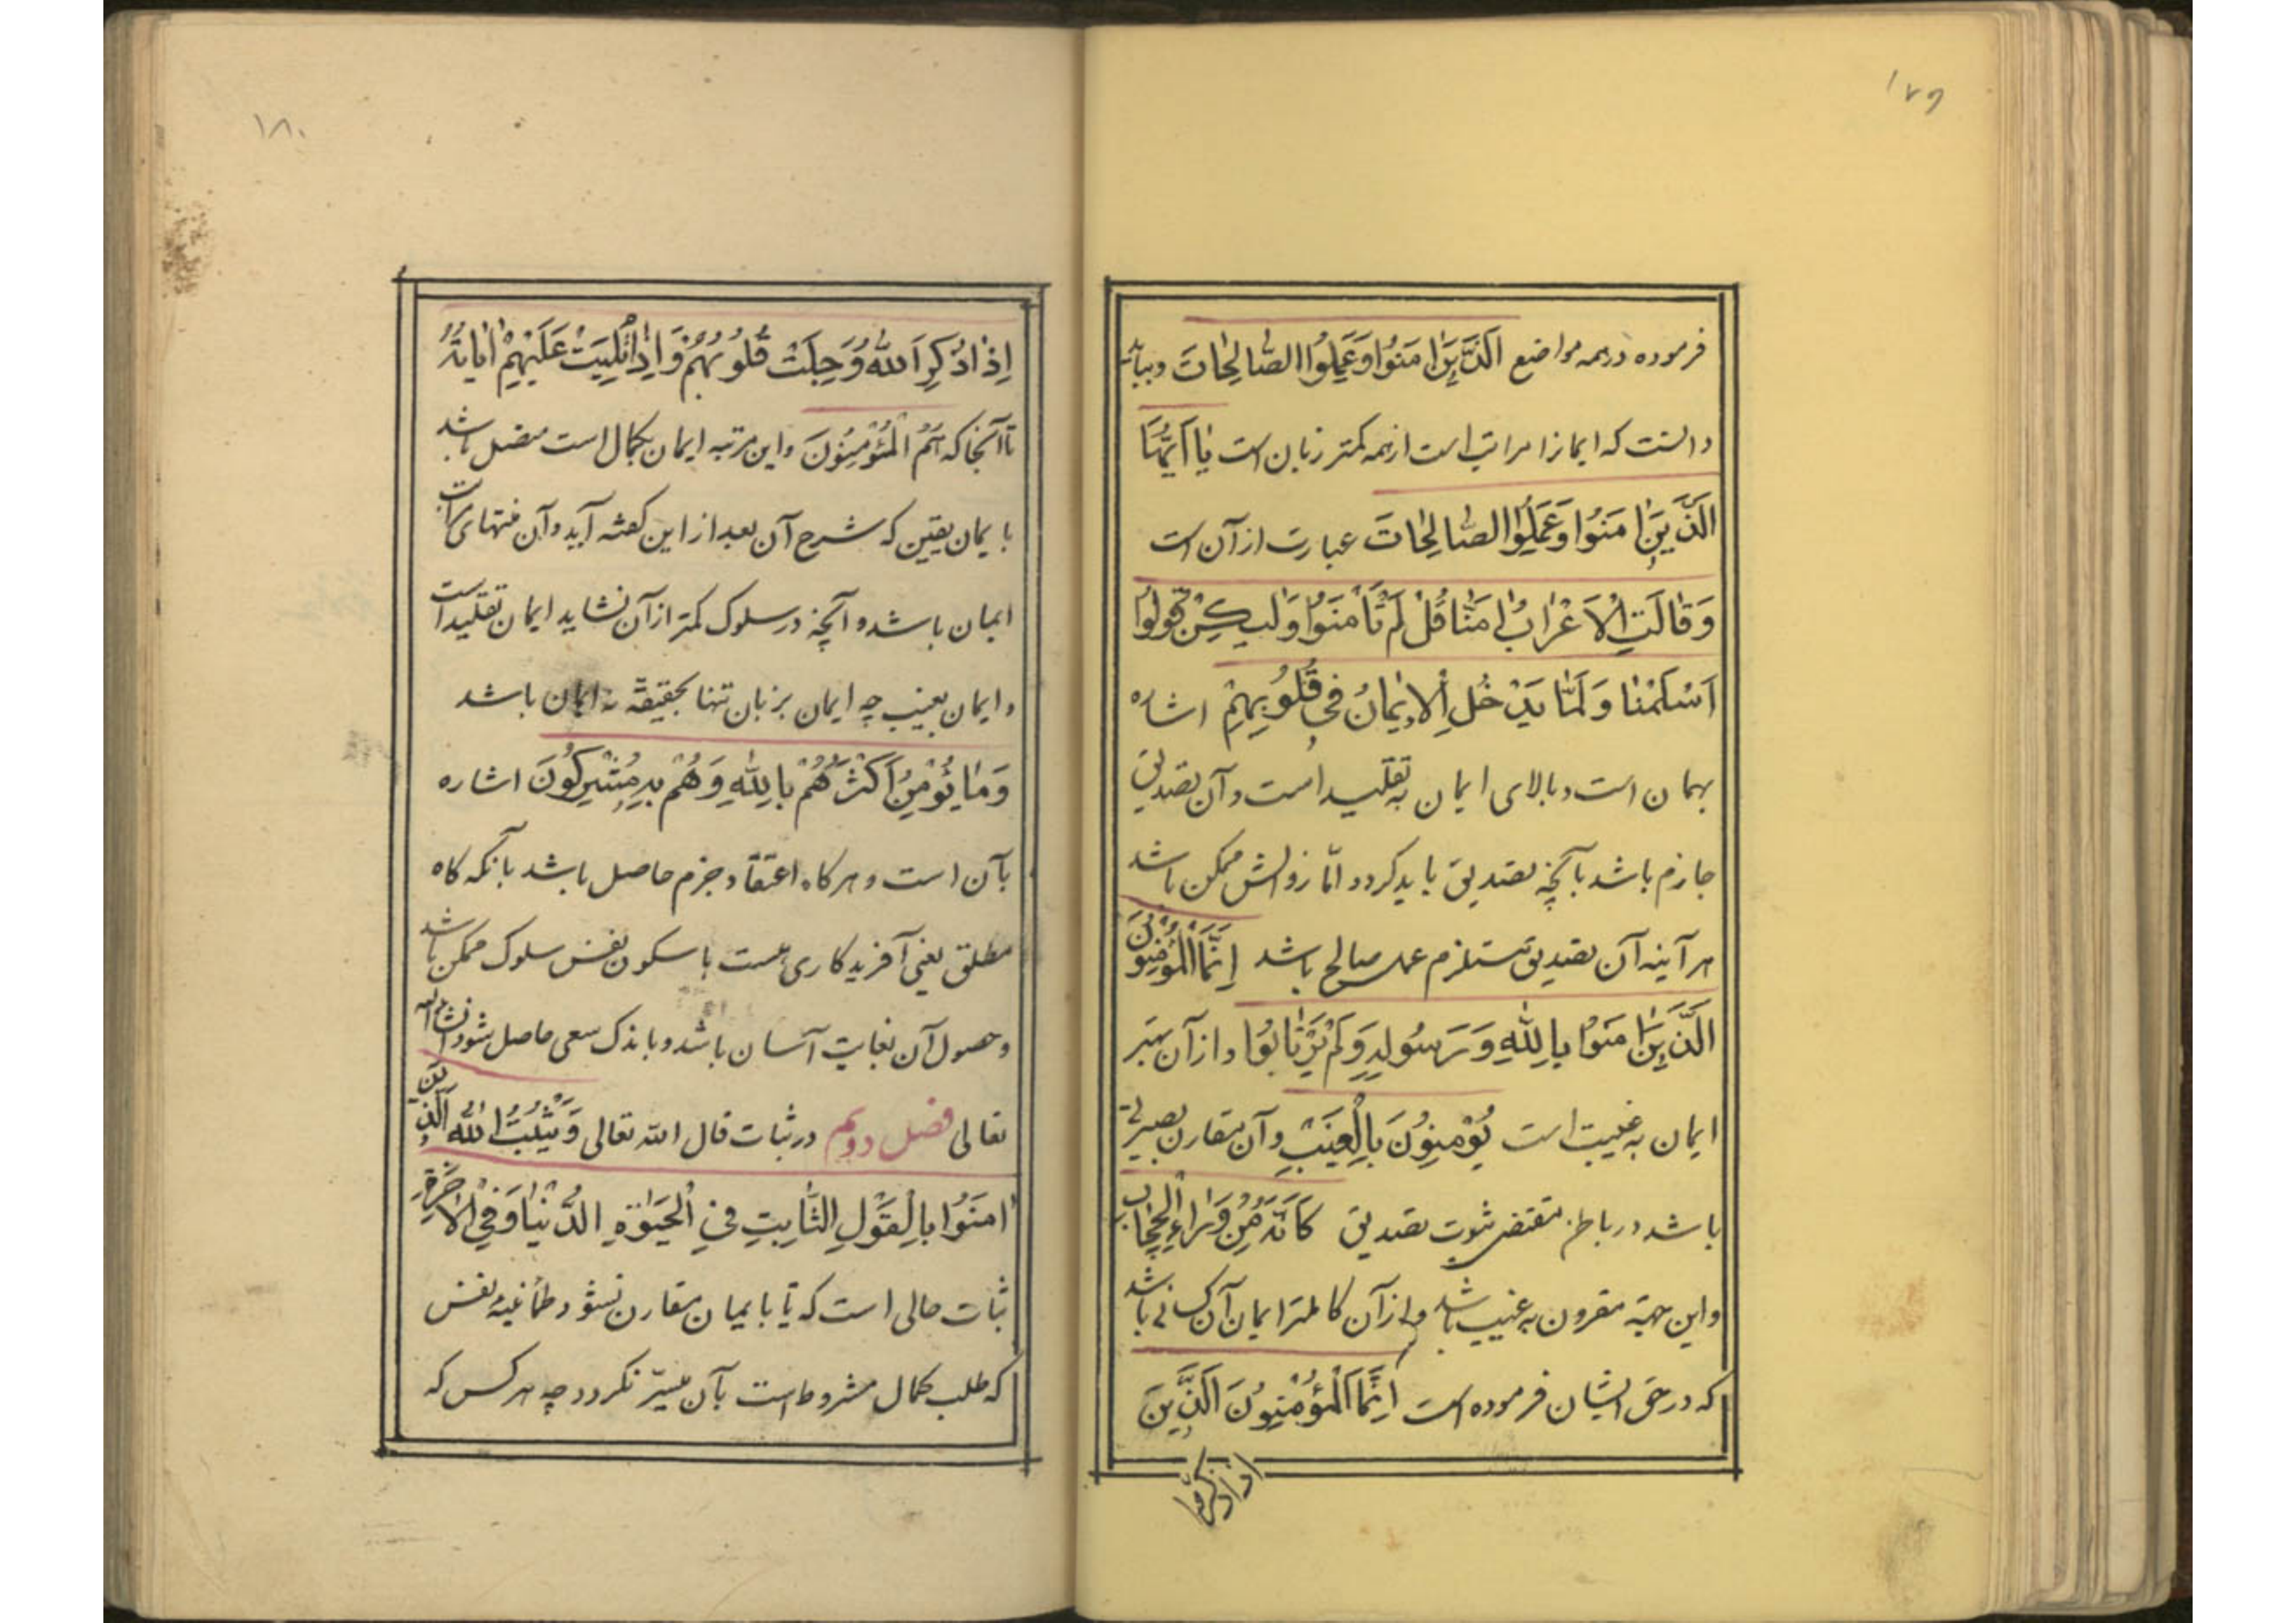 ۱۷۹
فرموده در همه مواضع الَّذینَ امَنُوا وَعَمِلُوا الصّالِحاتَ و بباید
دانست که ایمانرا مراتب است از همه کمتر زبان است یا اَیُّهَا
الَّذینَ امَنُوا وَعَمِلُوا الصّالِحاتَ عبارت از آن است
وَقالَتِ الْاَعْرابُ امَنّا قُلْ لَمْ تَأْمَنُوا وَلیکِنْ قُولُوا
اَسْلَمْنا وَلَمّا یَدْخُلِ الْایمانُ فی قُلُوبِهِمْ اشاره
بهمان است و بالای ایمان به تقلید است و آن تصدیق
جازم باشد بآنچه تصدیق باید کردد امّا زوالش ممکن باشد
هر آینه آن تصدیق مستلزم عمل صالح باشد اِنَّمَا الْمُؤْمِنُونَ
الَّذینَ امَنُوا بِاللّٰهِ وَرَسُولِهِ وَلَمْ یَرْتابُوا و از آن بهتر
ایمان به غیبت است یُؤْمِنُونَ بِالْغَیْبِ و آن مقارن بصیرتی
باشد در باطن مقتضی ثبوت تصدیق کَاَنَّهُ مِنْ وَراءِ الْحِجابِ
و این جهة مقرون به غیب باشد و از آن کاملتر ایمان آن کسانی باشد
که در حق ایشان فرموده است اِنَّمَا الْمُؤْمِنُونَ الَّذینَ
۱۸۰
اِذا ذُکِرَ اللّٰهُ وَجِلَتْ قُلُوبُهُمْ وَاِذا تُلِیَتْ عَلَیْهِمْ ایاتُهُ
تا آنجا که هُمُ الْمُؤْمِنُونَ و این مرتبه ایمان بکمال است متصل باشد
با یمان یقین که شرح آن بعد از این کفته آید و آن منتهای مراتب
ایمان باشد و آنچه در سلوک کمتر از آن نشاید ایمان تقلید است
و ایمان بغیب چه ایمان بزبان تنها بحقیقة نه ایمان باشد
وَما یُؤْمِنُ اَکْثَرُهُمْ بِاللّٰهِ وَهُمْ بِهِ مُشْرِکُونَ اشاره
بآن است و هر کاه اعتقاد جزم حاصل باشد بآنکه کاه
مطلق یعنی آفریدکاری هست با سکون نفس سلوک ممکن باشد
و حصول آن بغایت آسان باشد و باندک سعی حاصل شود انشاءالله
تعالی فصل دویم در ثبات قال الله تعالی وَیُثَبِّتُ اللّٰهُ الَّذینَ
امَنُوا بِالْقَوْلِ الثّابِتِ فی الْحَیوٰةِ الدُّنْیا وَفِی الْاخِرَةِ
ثبات حالی است که تا بایمان مقارن نشود طمأنینهٔ نفس
که طلب کمال مشروط است بآن میسّر نکردد چه هر کس که